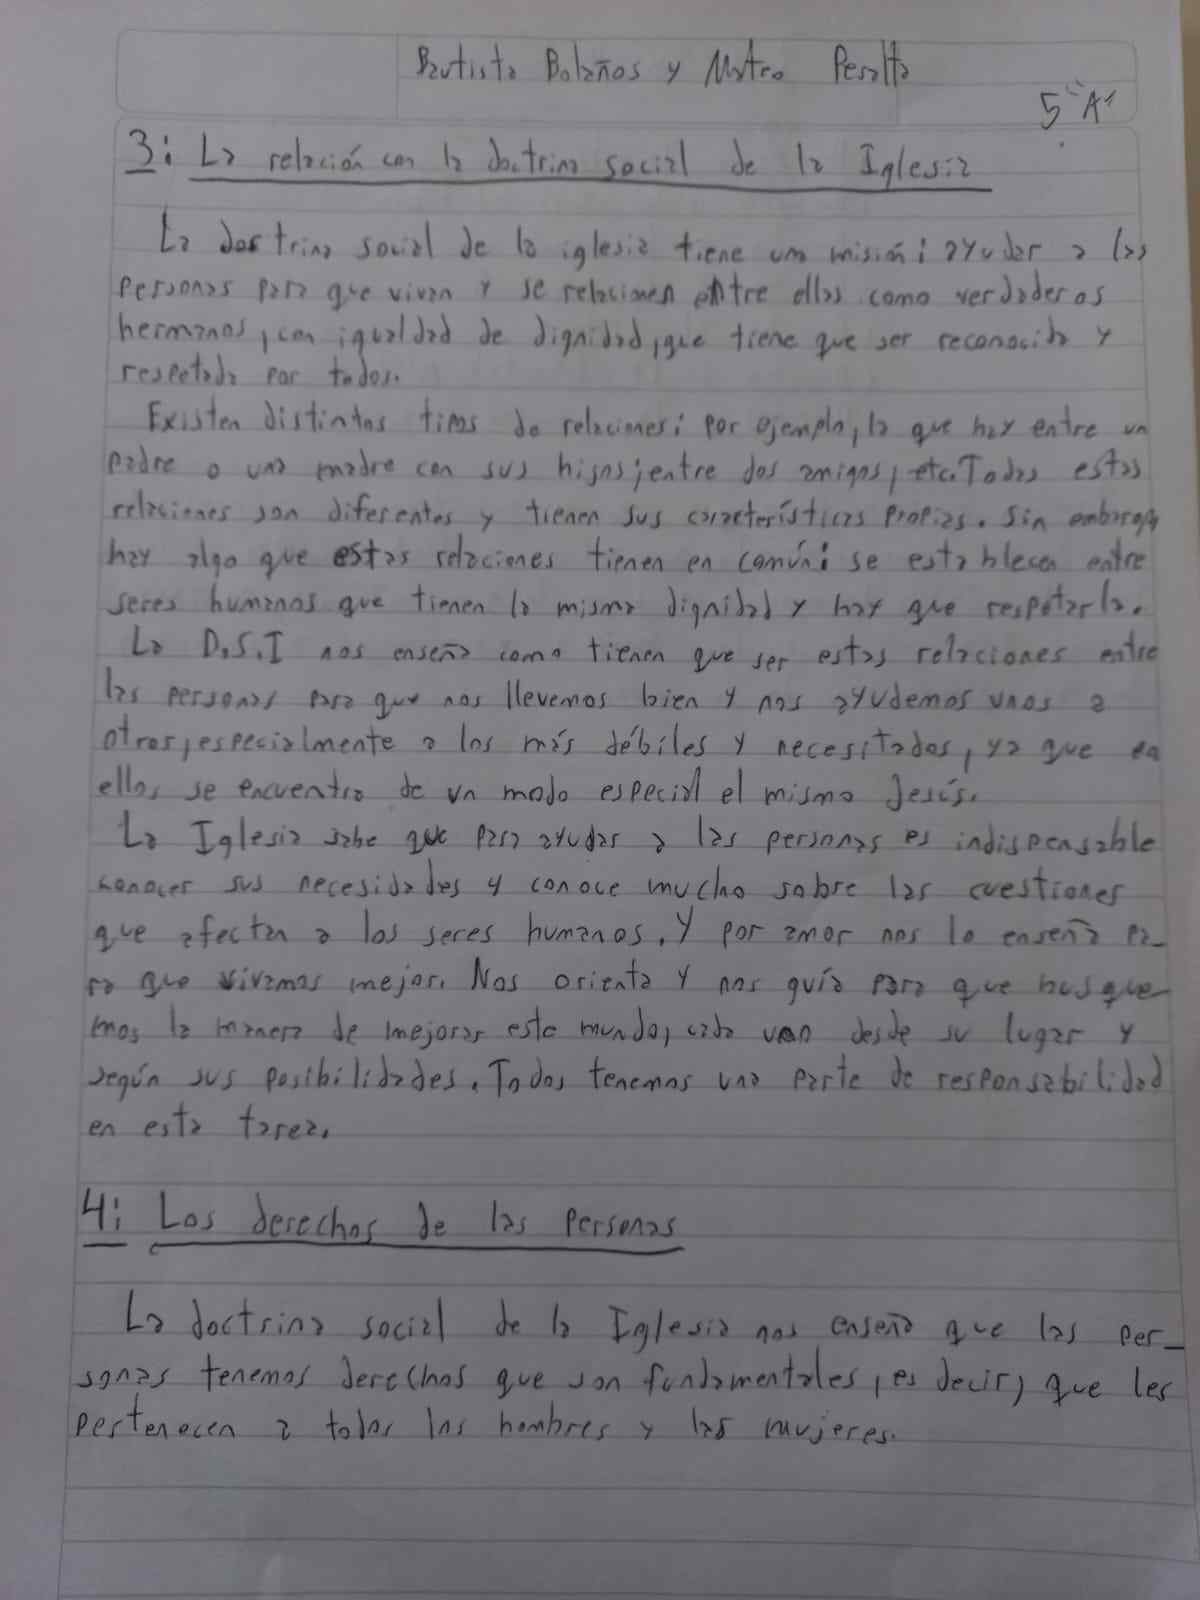 Bautista Bolaños y Mateo Peralta
5 "A"
3: La relación con la doctrina social de la Iglesia
La doctrina social de la iglesia tiene una misión: ayudar a las
personas para que vivan y se relacionen entre ellas como verdaderos
hermanos, con igualdad de dignidad, que tiene que ser reconocida y
respetada por todos.
Existen distintos tipos de relaciones: por ejemplo, la que hay entre un
padre o una madre con sus hijos; entre dos amigos, etc. Todas estas
relaciones son diferentes y tienen sus características propias. Sin embargo,
hay algo que estas relaciones tienen en común: se establecen entre
seres humanos que tienen la misma dignidad y hay que respetarla.
La D.S.I nos enseña como tienen que ser estas relaciones entre
las personas para que nos llevemos bien y nos ayudemos unos a
otros, especialmente a los más débiles y necesitados, ya que en
ellos se encuentra de un modo especial el mismo Jesús.
La Iglesia sabe que para ayudar a las personas es indispensable
conocer sus necesidades y conoce mucho sobre las cuestiones
que afectan a los seres humanos. Y por amor nos lo enseña pa-
ra que vivamos mejor. Nos orienta y nos guía para que busque-
mos la manera de mejorar este mundo, cada uno desde su lugar y
según sus posibilidades. Todos tenemos una parte de responsabilidad
en esta tarea.
4: Los derechos de las personas
La doctrina social de la Iglesia nos enseña que las per-
sonas tenemos derechos que son fundamentales, es decir, que les
pertenecen a todos los hombres y las mujeres.